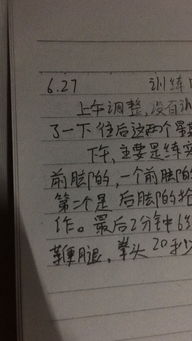 6.27 训练
上午调整,没有训
了一下 往后这两个星
下午,主要是练实
前腿的,一个前腿的
第二个是 后腿的抢
作。最后2分钟 6组
鞭腿,拳头 20秒